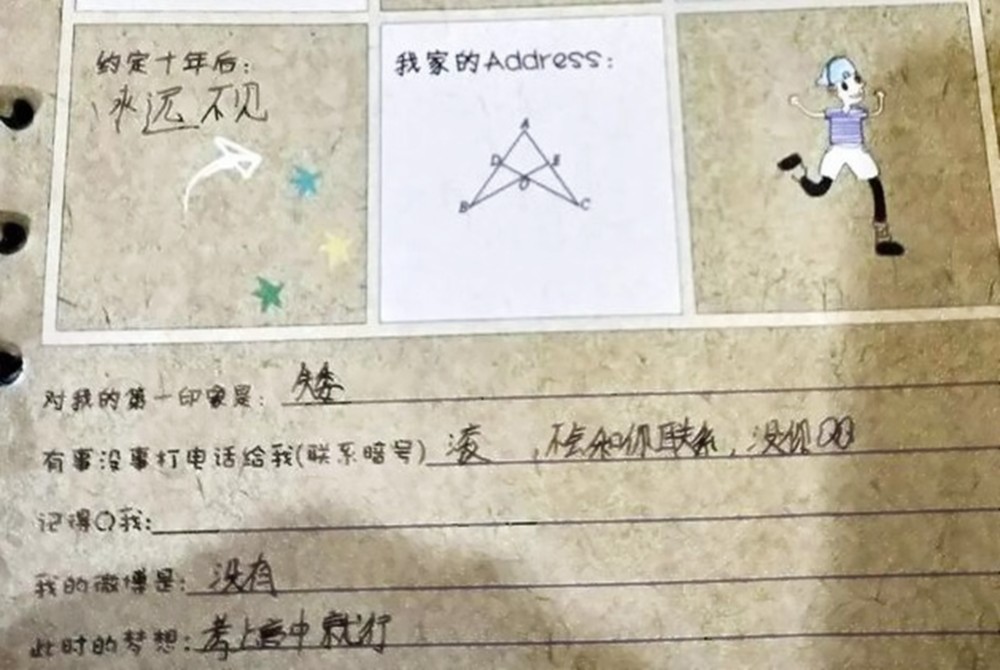 约定十年后:
永远不见
我家的Address:
A
D E
O
B C
对我的第一印象是: 矮
有事没事打电话给我(联系暗号) 滚,不会和你联系,没你QQ
记得Q我:
我的微博是: 没有
此时的梦想: 考上高中就行